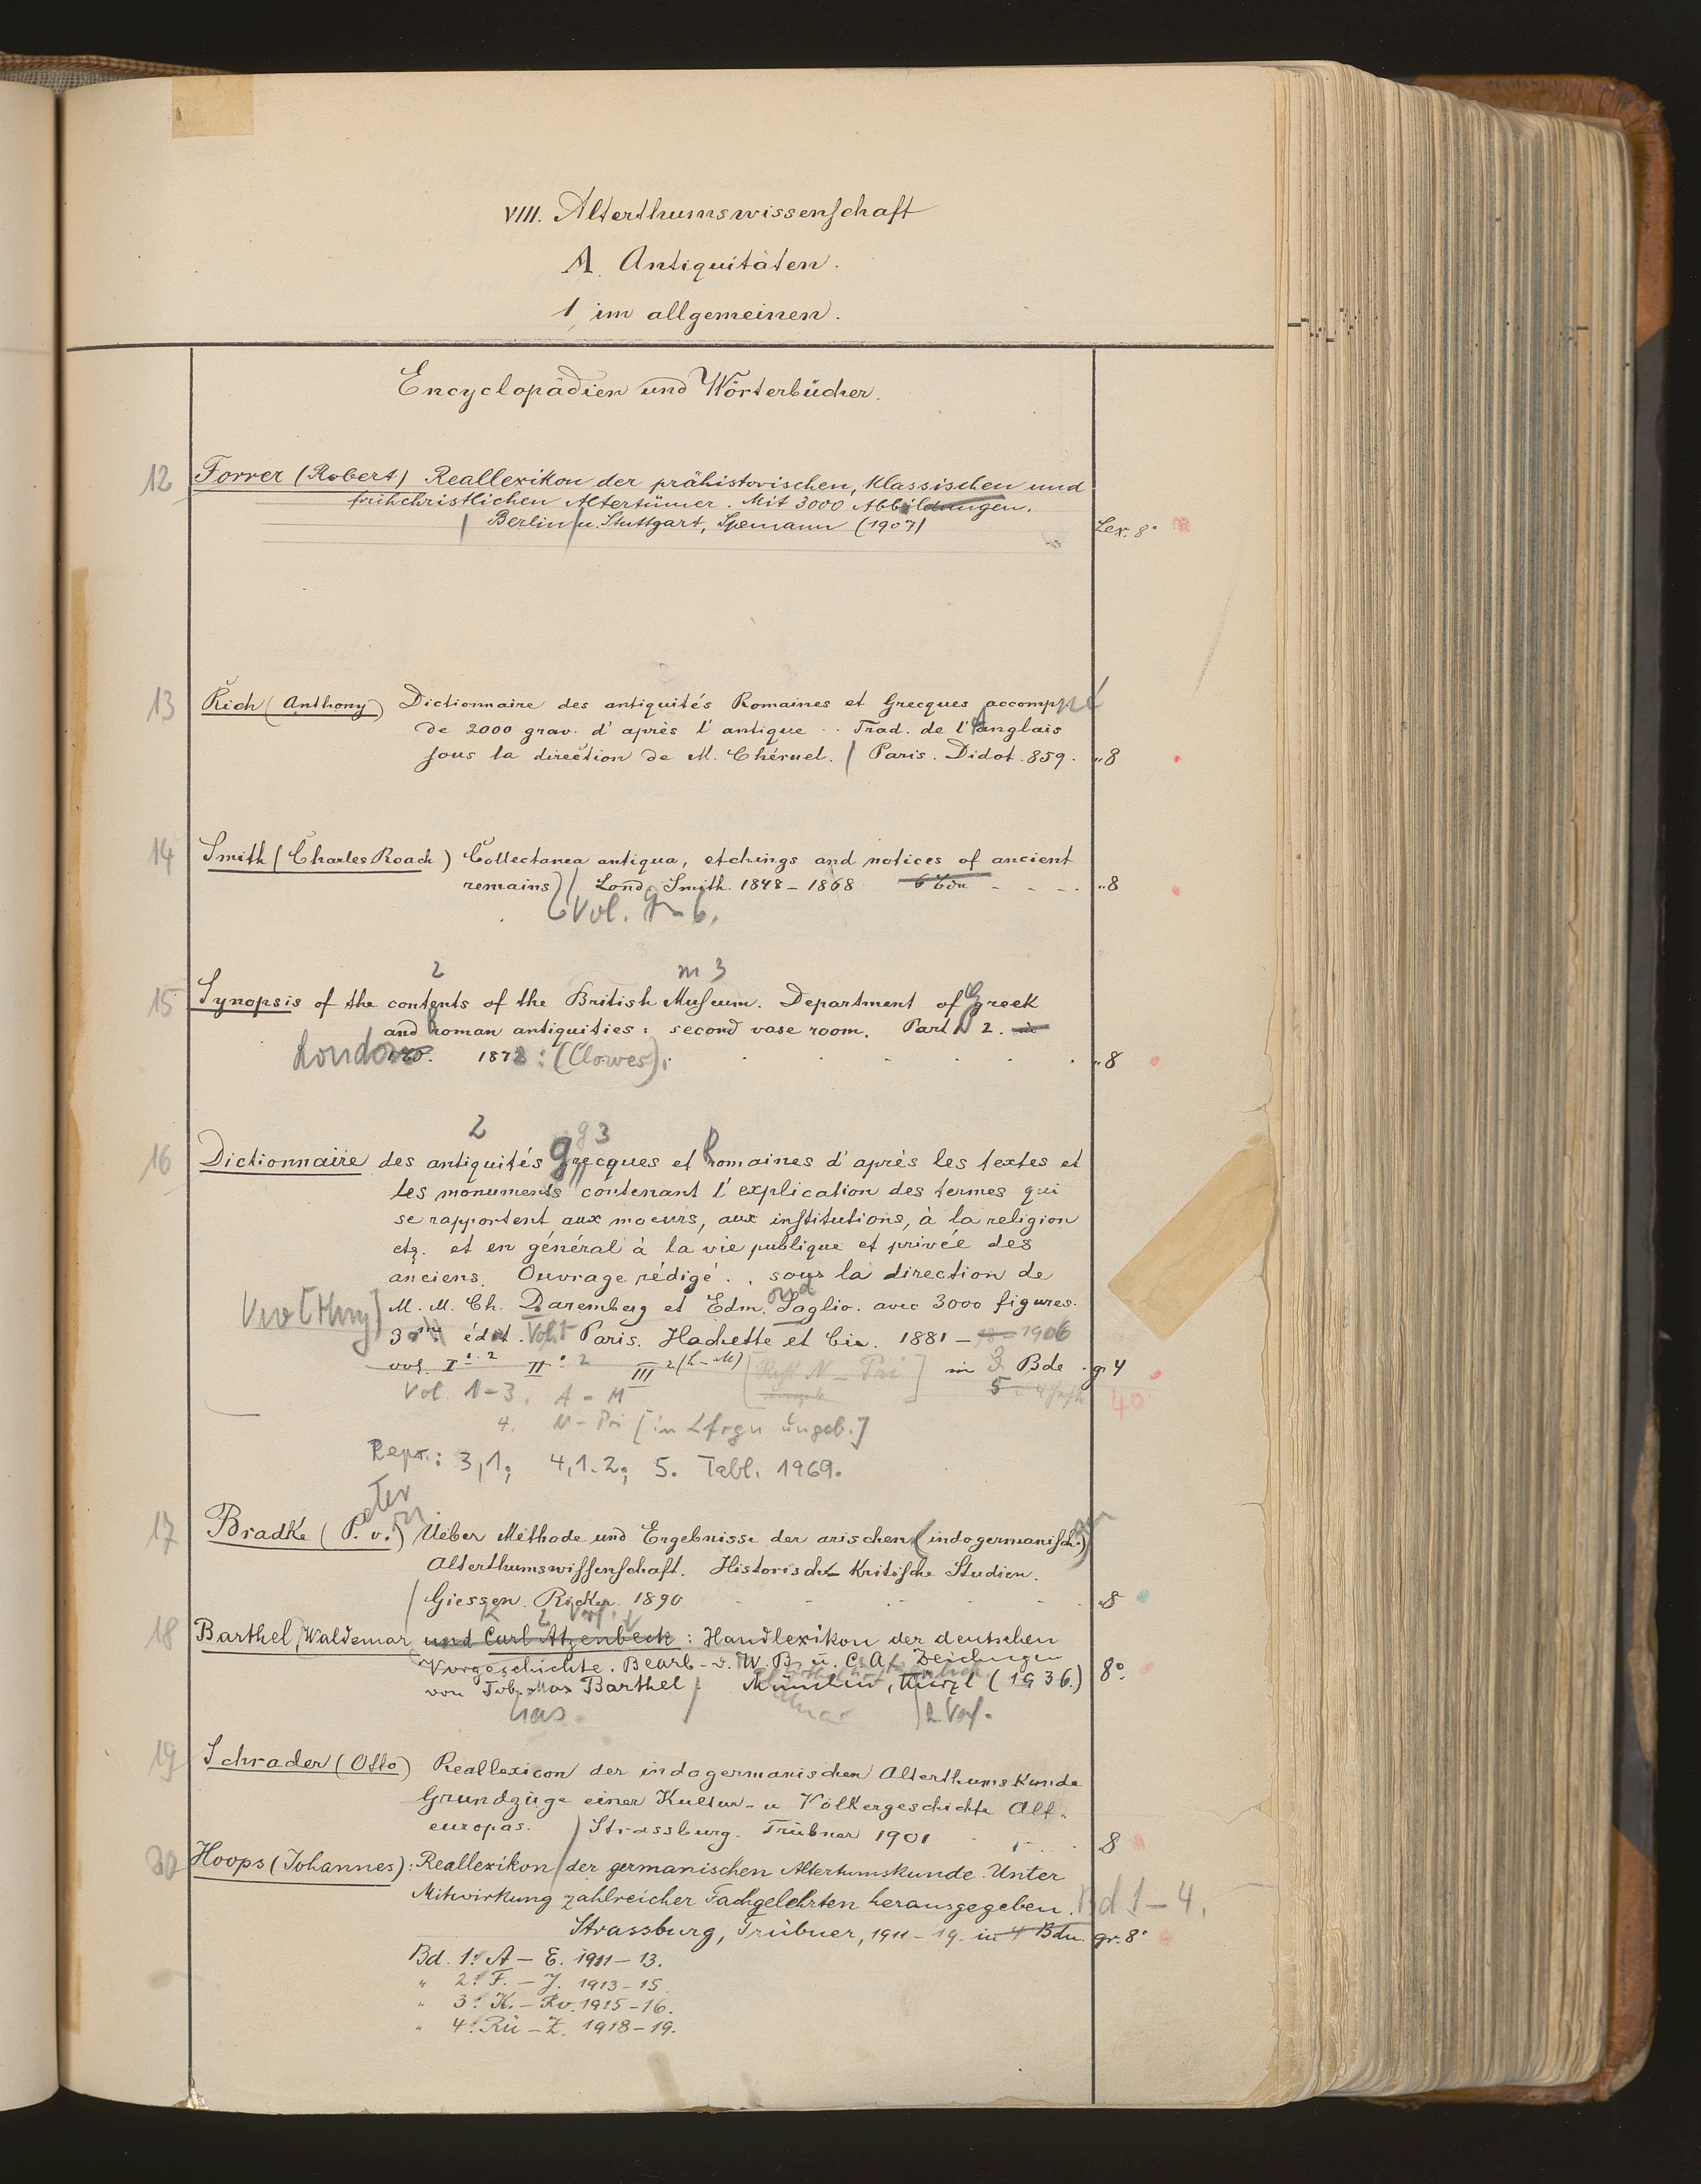 VIII. Alterthumswissenschaft
A. Antiquitäten.
1, im allgemeinen.
Encyclopädien und Wörterbücher.
12 Forrer (Robert) Reallexikon der prähistorischen, klassischen und
frühchristlichen Altertümer. Mit 3000 Abbildungen.
Berlin u. Stuttgart, Spemann (1907) Lex. 8°
13 Rich (Anthony) Dictionnaire des antiquités Romaines et Grecques accompné
de 2000 grav. d'après l'antique .. Trad. de l'anglais
sous la direction de M. Chéruel. / Paris. Didot. 859. "8
14 Smith (Charles Roach) Collectanea antiqua, etchings and notices of ancient
remains) / Lond. Smith. 1848 – 1868 6 Bde "8
Vol. 1–6.
2 m 3
15 Synopsis of the contents of the British Museum. Department of Greek
and Roman antiquities: second vase room. Part 2.
London 1878: (Clowes). "8
2 g 3
16 Dictionnaire des antiquités grecques et Romaines d'après les textes et
les monuments contenant l'explication des termes qui
se rapportent aux moeurs, aux institutions, à la religion
etz. et en général à la vie publique et privée des
anciens. Ouvrage rédigé . . sous la direction de
M. M. Ch. Daremberg et Edm. Saglio. avec 3000 figures.
3 édit. Paris. Hachette et Cie. 1881 – 1906
vol. I 1.2 II 1.2 III 2 (L–M) [Heft N – Pri] in 3 Bde gr 4
Vol. 1–3. A – M 5 40
4. N – Pri [in Lfrgn ungeb.]
Repr.: 3,1; 4,1.2; 5. Tabl. 1969.
17 Bradke (P. v.) Ueber Methode und Ergebnisse der arischen (indogermanisch.)
Alterthumswissenschaft. Historisch-Kritische Studien.
Giessen. Ricker. 1890 "8
18 Barthel, Waldemar und Carl Atzenbeck: Handlexikon der deutschen
Vorgeschichte. Bearb. v. W. B. u. C. A. Zeichngen
von Tob. Max Barthel / München, Kürzl (1936.) 8°.
2. Verf.
19 Schrader (Otto) Reallexicon der indogermanischen Alterthumskunde
Grundzüge einer Kultur- u Völkergeschichte Alt-
europas. / Strassburg. Trübner 1901 8
20 Hoops (Johannes): Reallexikon der germanischen Altertumskunde. Unter
Mitwirkung zahlreicher Fachgelehrten herausgegeben. Bd 1–4.
Strassburg, Trübner, 1911–19. in 4 Bdn. gr. 8°
Bd. 1: A – E. 1911–13.
" 2: F. – J. 1913–15.
" 3: K. – Ro. 1915–16.
" 4: Rü – Z. 1918–19.